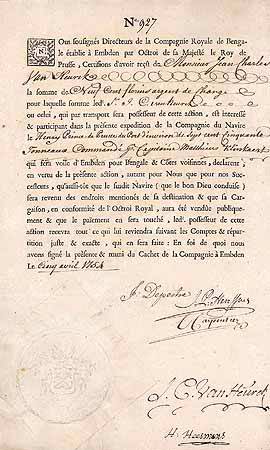 No. 927
Nous soussignés Directeurs de la Compagnie Royale de Bengale
établie à Embden par Octroi de sa Majesté le Roy de
Prusse, Certifions d'avoir reçu de Monsieur Jean Charles
Van Heurck
la somme de Neuf Cent florins argent de change
pour laquelle somme led.
ou celui, qui par transport sera possesseur de cette action, est interessé
& participant dans la présente expedition de la Compagnie du Navire
le Henry Prince de Prusse du Port d'environ de sept cent Cinquante
Tonneaux Commandé p. Capitaine Matthieu
qui fera voile d'Embden pour Bengale & Côtes voisines, declarent, en
vertu de la présente action, autant pour Nous que pour nos Successeurs,
qu'aussi-tôt que le susdit Navire (que le bon Dieu conduise)
sera revenu des endroits mentionés de sa destination & que sa Cargaison,
en conformité de l'Octroi Royal, aura été vendue publiquement
& que le paiement en sera touché, led. possesseur de cette
action recevra tout ce qui lui reviendra suivant les Comptes & répartition
juste & exacte, qui en sera faite: En foi de quoi nous
avons signé la présente & muni du Cachet de la Compagnie à Embden
Le Cinq avril
J. Depestre
J. C. Van Heurck